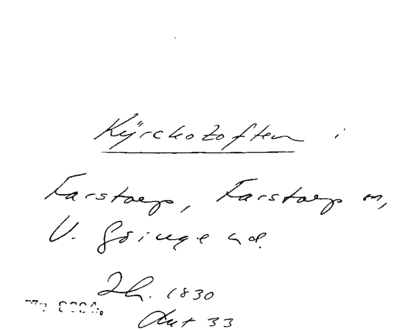 Kÿrckotoften i
Farstorp, Farstorp sn,
V. Göinge hd.
Lh. 1830
Akt 33